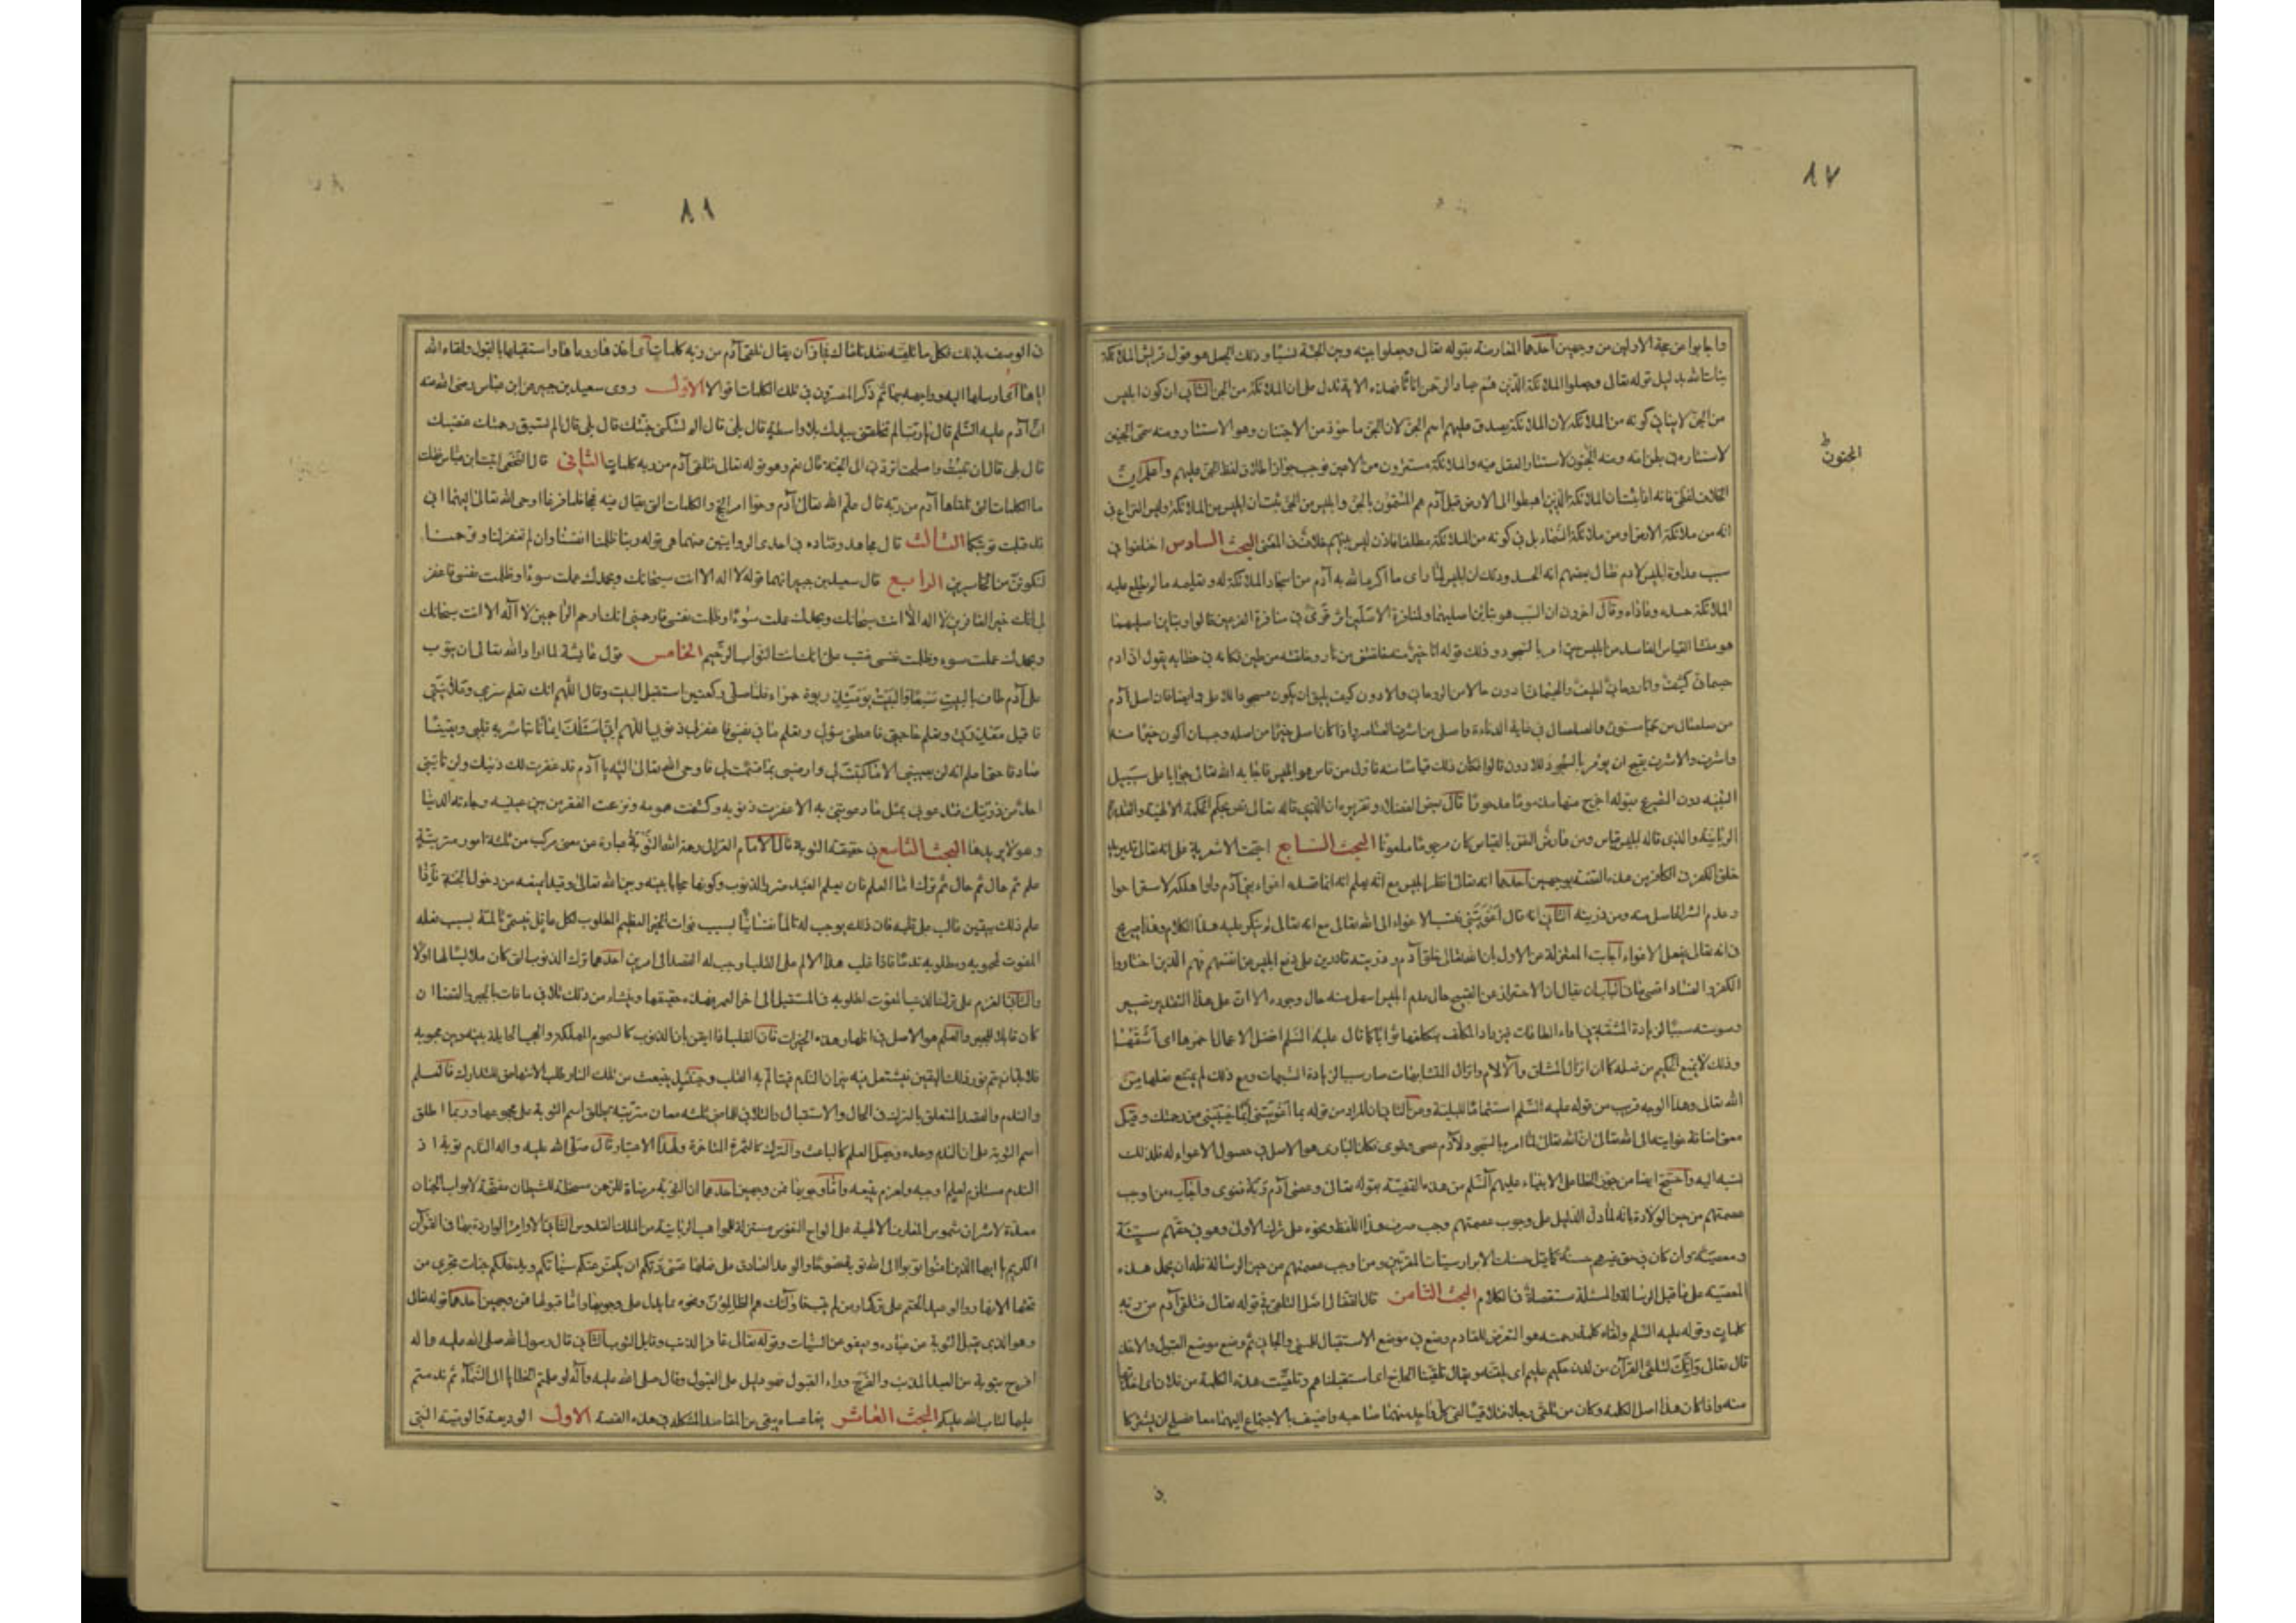 ٨٧
واجابوا عن حجة الاولين من وجهين احدهما المعارضة بقوله تعالى وجعلوا بينه وبين الجنة نسبا وذلك الجعل هو قول قريش الملائكة
بنات الله بدليل قوله تعالى وجعلوا الملائكة الذين هم عباد الرحمن اناثا فهذه الاية تدل على ان الملائكة من الجن الثاني ان كون ابليس
من الجن لا ينافي كونه من الملائكة لان الملائكة يصدق عليهم اسم الجن لان الجن ماخوذ من الاجتنان وهو الاستتار ومنه سمى الجنين
لاستتاره في بطن امه ومنه الجنون لاستتار العقل فيه والملائكة مستترون من الاعين فوجب جواز اطلاق لفظ الجن عليهم واعلم ان
المجنون ط
الخلاف لفظي فانه اذا ثبت ان الملائكة الذين اهبطوا الى الارض قبل آدم هم المسمون بالجن وابليس من الجن ثبت ان ابليس من الملائكة وليس النزاع في
انه من ملائكة الارض او من ملائكة السماء بل في كونه من الملائكة مطلقا فاذن ليس بينهم خلاف في المعنى البحث السادس اختلفوا في
سبب عداوة ابليس لادم فقال بعضهم انه الحسد وذلك ان ابليس لما راى ما اكرم الله به آدم من اسجاد الملائكة له وتعليمه ما لم يطلع عليه
الملائكة حسده وعاداه وقال اخرون ان السبب هو تباين اصليهما ولمنافرة الاصلين اثر قوى في منافرة الفرعين قالوا وتباين اصليهما
هو منشا القياس الفاسد من ابليس حين امر بالسجود وذلك قوله انا خير منه خلقتني من نار وخلقته من طين فكانه في خطابه يقول ان آدم
جسماني كثيف وانا روحاني لطيف والجسماني ادون حالا من الروحاني والادون كيف يليق ان يكون مسجودا للاعلى وايضا فان اصل آدم
من صلصال من حماء مسنون والصلصال في غاية الدناءة واصلي من اشرف العناصر واذا كان اصلي خيرا من اصله وجب ان اكون خيرا منه
واشرف والاشرف يقبح ان يؤمر بالسجود للادون قالوا فكان ذلك قياسا منه فاول من قاس هو ابليس فاجابه الله تعالى جوابا على سبيل
التنبيه دون التصريح بقوله اخرج منها مذموما مدحورا قال بعض الفضلاء وتقريره ان الذي قاله تعالى نص بحكم الحكمة الالهية والقدرة
الربانية والذي قاله ابليس قياس ومن عارض النص بالقياس كان مرجوما ملعونا البحث السابع احتجت الاشعرية على انه تعالى قد يريد
خلق الكفر في الكافر من هذه القصة بوجهين احدهما انه تعالى انظر ابليس مع انه يعلم انه انما قصده اغواء بني آدم ولو اهلكه لاستراحوا
وعدم الشر الحاصل منه ومن ذريته الثاني انه قال اغويتني فنسب الاغواء الى الله تعالى مع انه تعالى لم ينكر عليه هذا الكلام وهذا صريح
في انه تعالى يفعل الاغواء اجابت المعتزلة عن الاول بان الله تعالى خلق آدم وذريته قادرين على دفع ابليس عن انفسهم فهم الذين اختاروا
الكفر والفساد اقصى ما في الباب ان يقال ان الاحتراز عن القبيح حال عدم ابليس اسهل منه حال وجوده الا ان على هذا التقدير تصير
وسوسته سببا لزيادة المشقة في اداء الطاعات فيزداد المكلف بتكلفها ثوابا كما قال عليه السلم افضل الاعمال احمزها اى اشقها
وذلك لا يمنع الحكيم من فعله كما ان انزال المشاق والالام وانزال المتشابهات صار سببا لزيادة الشبهات ومع ذلك لم يمتنع فعلها من
الله تعالى وهذا الوجه قريب من قوله عليه السلم استتماما للبلية وعن الثاني ان المراد من قوله بما اغويتني اى بما خيبتني من رحمتك وقيل
معنى اضافة غوايته الى الله تعالى ان الله تعالى لما امره بالسجود لآدم عصى وغوى فكان البارى هو الاصل في حصول الاغواء له فلذلك
نسبه اليه واحتج ايضا من جوز الخطا على الانبياء عليهم السلم من هذه القصة بقوله تعالى وعصى آدم ربه فغوى واجاب من اوجب
عصمتهم من حين الولادة بانه لما دل الدليل على وجوب عصمتهم وجب صرف هذا اللفظ ونحوه على ترك الاولى وهو في حقهم سيئة
ومعصية وان كان في حق غيرهم حسنة كما قيل حسنات الابرار سيئات المقربين ومن اوجب عصمتهم من حين الرسالة فله ان يحمل هذه
المعصية على ما قبل الرسالة والمسئلة مستقصاة في الكلام البحث الثامن قال القفال اصل التلقي في قوله تعالى فتلقى آدم من ربه
كلمات وقوله عليه السلم ولقاه كلمة رحمته هو التعرض للقادم وضع في موضع الاستقبال للمسيء والجاني ثم وضع موضع القبول والاخذ
قال تعالى وانك لتلقى القرآن من لدن حكيم عليم اى يلقنه ويقال تلقينا الحاج اى استقبلناهم وتلقيت هذه الكلمة من فلان اى اخذتها
منه واذا كان هذا اصل الكلمة وكان من تلقى رجلا فتلاقيا لقى كل واحد منهما صاحبه واضيف بالاجتماع اليهما معا صلح ان يشتركا
٨٨
في الوصف بذلك فكل ما تلقيته فقد تلقاك فجاز ان يقال تلقى آدم من ربه كلمات اى اخذها ووعاها واستقبلها بالقبول ولقاه الله
اياها اى ارسلها اليه وواجهه بها ثم ذكر المفسرون في تلك الكلمات اقوالا الاول روى سعيد بن جبير عن ابن عباس رضى الله عنه
ان آدم عليه السلم قال يا رب الم تخلقني بيدك بلا واسطة قال بلى قال الم تسكني جنتك قال بلى قال الم تسبق رحمتك غضبك
قال بلى قال ان تبت واصلحت تردني الى الجنة قال نعم وهو قوله تعالى فتلقى آدم من ربه كلمات الثاني قال النخعي اتيت ابن عباس فقلت
ما الكلمات التي تلقاها آدم من ربه قال علم الله تعالى آدم وحوا امر الحج والكلمات التي يقال فيه فحجا فلما فرغا اوحى الله تعالى اليهما اني
قد قبلت توبتكما الثالث قال مجاهد وقتاده في احدى الروايتين عنهما هي قوله ربنا ظلمنا انفسنا وان لم تغفر لنا وترحمنا
لنكونن من الخاسرين الرابع قال سعيد بن جبير انهما قوله لا اله الا انت سبحانك وبحمدك عملت سوءا وظلمت نفسي فاغفر
لي انك خير الغافرين لا اله الا انت سبحانك وبحمدك عملت سوءا وظلمت نفسي فارحمني انك ارحم الراحمين لا اله الا انت سبحانك
وبحمدك عملت سوء وظلمت نفسي فتب على انك انت التواب الرحيم الخامس قول عايشة لما اراد الله تعالى ان يتوب
على آدم طاف بالبيت سبعا والبيت يومئذ ربوة حمراء فلما صلى ركعتين استقبل البيت وقال اللهم انك تعلم سري وعلانيتي
فاقبل معذرتي وتعلم حاجتي فاعطني سؤلي وتعلم ما في نفسي فاغفر لي ذنوبي اللهم اني اسئلك ايمانا تباشر به قلبي ويقينا
صادقا حتى اعلم انه لن يصيبني الا ما كتبت لي وارضني بما قسمت لي فاوحى الله تعالى اليه يا آدم قد غفرت لك ذنبك ولن ياتيني
احد من ذريتك فيدعوني بمثل ما دعوتني به الا غفرت ذنوبه وكشفت همومه ونزعت الفقر من بين عينيه وجاءته الدنيا
وهو لا يريدها البحث التاسع في حقيقة التوبة قال الامام الغزالي رحمه الله التوبة عبارة عن معنى مركب من ثلثة امور مترتبة
علم ثم حال ثم ترك اما العلم فان يعلم العبد ضرر الذنوب وكونها حجابا بينه وبين الله تعالى وقيدا يمنعه من دخول الجنة فاذا
علم ذلك بيقين غالب على قلبه فان ذلك يوجب له تالما نفسانيا بسبب فوات الخير العظيم المطلوب لكل عاقل فيسمى تالمه بسبب فعله
المفوت لمحبوبه ومطلوبه ندما فاذا غلب هذا الالم على القلب اوجب له القصد الى امرين احدهما ترك الذنوب التي كان ملابسا لها اولا
والثاني العزم على ترك الذنب المفوت لمطلوبه في المستقبل الى اخر العمر فهذه حقيقتها وينشاء من ذلك تلافي ما فات بالجبر والقضا ان
كان قابلا للجبر والعلم هو الاصل في اظهار هذه الخيرات فان القلب اذا ايقن بان الذنوب كالسموم المهلكه والحجب الحايلة بينه وبين محبوبه
فلا بد ان يتم نور ذلك اليقين فيشتعل فيه نيران الندم فيتالم به القلب وحينئذ ينبعث من تلك النار طلب الانتهاض للتدارك فالعلم
والندم والقصد المتعلق بالترك في الحال والاستقبال والتلافي للماضي ثلثة معان مترتبة يطلق اسم التوبة على مجموعها وربما اطلق
اسم التوبة على الندم وحده وجعل العلم كالباعث والترك كالثمرة المتاخرة ولهذا الاعتبار قال صلى الله عليه واله الندم توبة اذ
الندم مستلزم لعلم اوجبه ولعزم يتبعه واما وجوبها فمن وجهين احدهما ان التوبة مرضاة للرحمن مسخطة للشيطان مفتحة لابواب الجنان
معدة لاشراق شموس المعارف الالهية على الواح النفوس مستنزلة للمواهب الربانية من الملك القدوس الثاني الاوامر الواردة بها في القرآن
الكريم يا ايها الذين امنوا توبوا الى الله توبة نصوحا والوعد الصادق على فعلها عسى ربكم ان يكفر عنكم سيئاتكم ويدخلكم جنات تجري من
تحتها الانهار والوعيد الحتم على تركها ومن لم يتب فاولئك هم الظالمون ونحوه مما يدل على وجوبها واما قبولها فمن وجهين احدهما قوله تعالى
وهو الذي يقبل التوبة عن عباده ويعفو عن السيئات وقوله تعالى غافر الذنب وقابل التوب الثاني قال رسول الله صلى الله عليه واله
افرح بتوبة من العبد المذنب والفرح وراء القبول فهو دليل على القبول وقال صلى الله عليه وآله لو عملتم الخطايا الى السماء ثم ندمتم
عليها لتاب الله عليكم البحث العاشر فيما عساه يبقى من المقاصد المشكله في هذه القصة الاول الوديعة والوصية التي